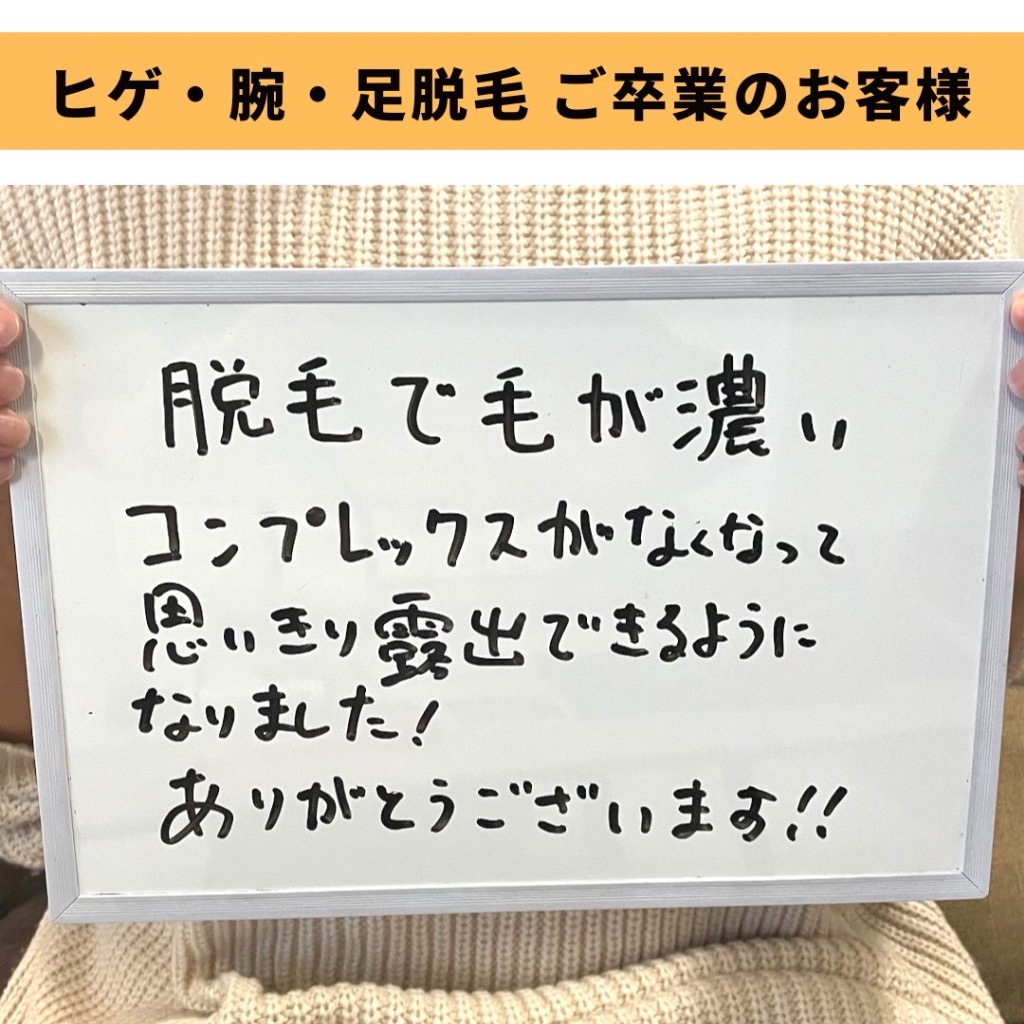 ヒゲ・腕・足脱毛 ご卒業のお客様
脱毛で毛が濃い
コンプレックスがなくなって
思いきり露出できるように
なりました!
ありがとうございます!!